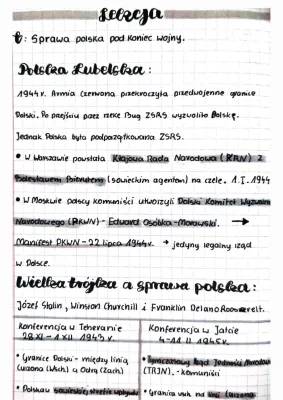 Lekcja
t: Sprawa polska pod koniec wojny.
Polska Lubelska:
1944r. Armia czerwona przekroczyła przedwojenne granice
Polski. Po przejściu przez rzekę Bug ZSRS wyzwoliło Polskę.
Jednak Polska była podporządkowana ZSRS.
• W Warszawie powstała Krajowa Rada Narodowa (KRN) z
Bolesławem Bierutem (sowieckim agentem) na czele. 1.I.1944
• W Moskwie polscy komuniści utworzyli Polski Komitet Wyzwolenia
Narodowego (PKWN) - Edward Osóbka-Morawski. →
Manifest PKWN - 22 lipca 1944r. → jedyny legalny rząd
w Polsce.
Wielka trójka a sprawa polska:
Józef Stalin, Winston Churchill i Franklin Delano Roosevelt.
Konferencja w Teheranie
28 XI - 1 XII 1943 r.
• Granice Polski - między linią
Curzona (Wsch.) a Odrą (Zach)
• Polska w sowieckiej strefie wpływów
Konferencja w Jałcie
4-11 II 1945r.
• Tymczasowy Rząd Jedności Narodowej
(TRJN). - komuniści
• Granica wsch. na linii Curzona